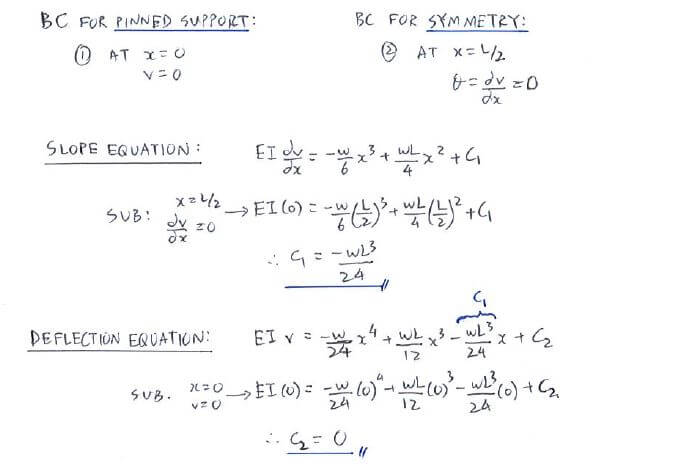 BC FOR PINNED SUPPORT:
① AT x=0
v=0
BC FOR SYMMETRY:
② AT x=L/2
θ=dv/dx=0
SLOPE EQUATION: EI dv/dx = -w/6 x³ + wL/4 x² + C₁
SUB: x=L/2 dv/dx=0 → EI(0) = -w/6 (L/2)³ + wL/4 (L/2)² + C₁
∴ C₁ = -wL³/24
C₁
DEFLECTION EQUATION: EI v = -w/24 x⁴ + wL/12 x³ - wL³/24 x + C₂
SUB. x=0 v=0 → EI(0) = -w/24 (0)⁴ + wL/12 (0)³ - wL³/24 (0) + C₂
∴ C₂ = 0